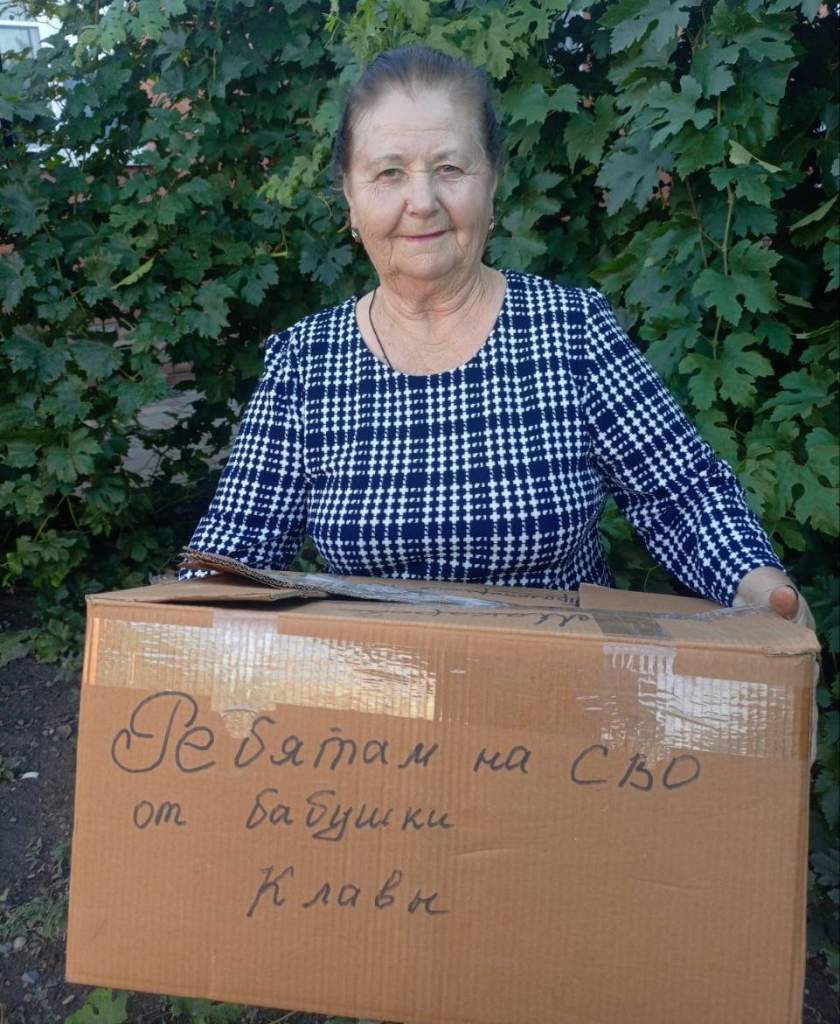 Ребятам на СВО
от бабушки
Клавы